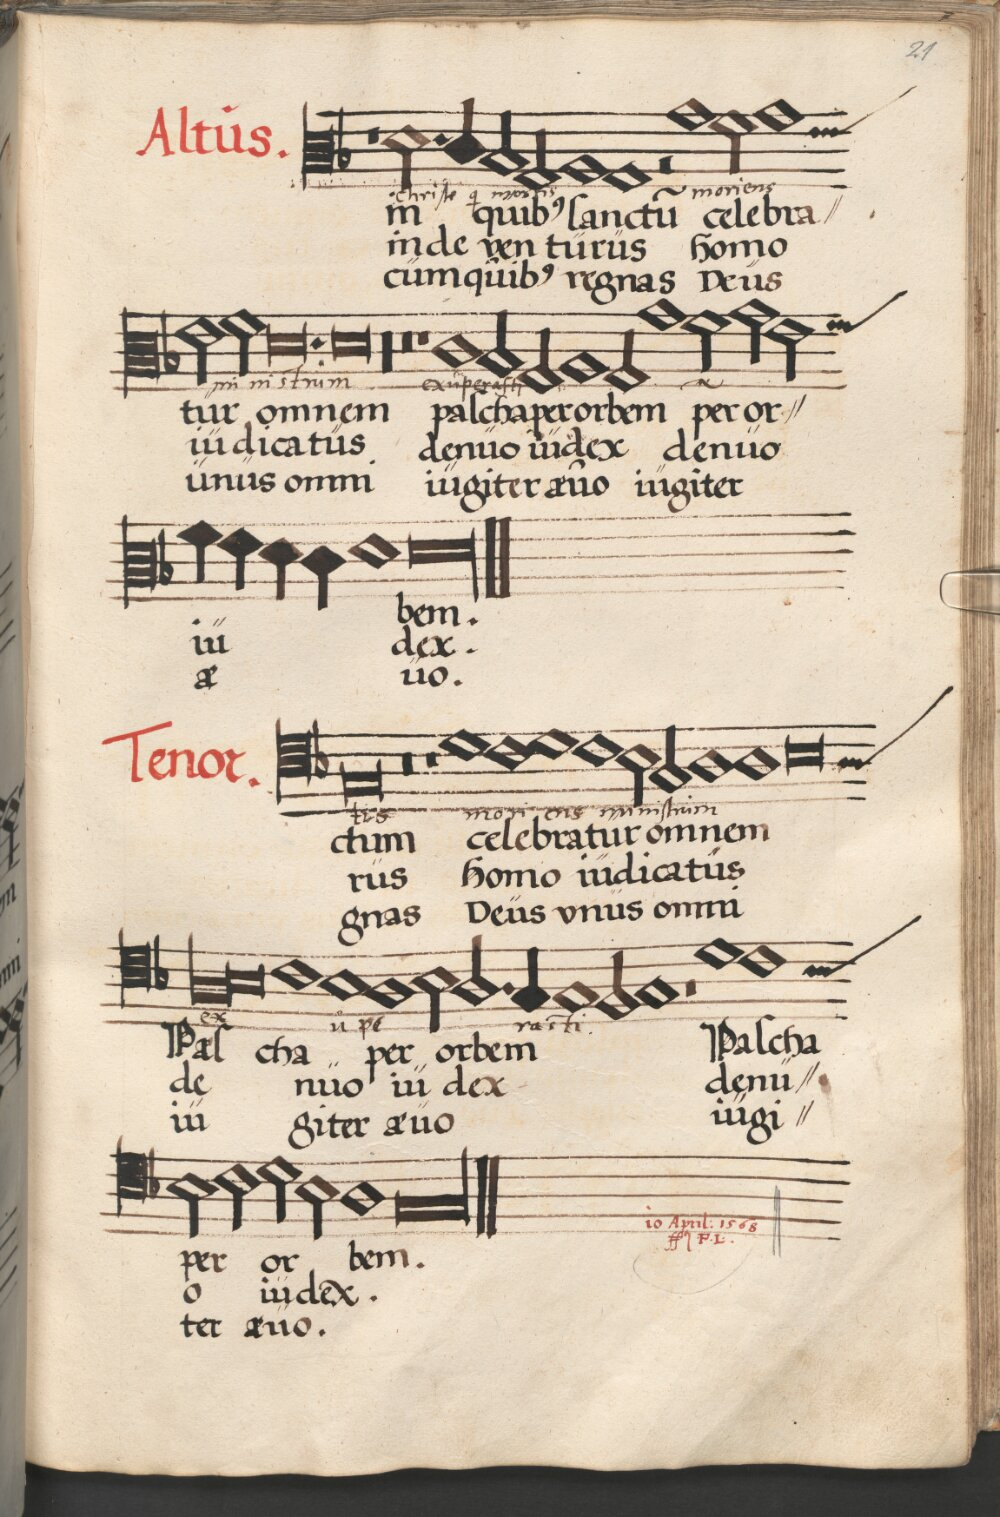 21
Altus.
Christe q mortis moriens
in quib⁹ sanctũ celebra//
inde venturus homo
cum quib⁹ regnas Deus
ministrum exuperasti
tur omnem pascha per orbem per or//
iudicatus denuo iudex denuo
unus omni iugiter æuo iugiter
bem.
iu dex.
æ uo.
Tenor.
tis mori ens ministrum
ctum celebratur omnem
rus homo iudicatus
gnas Deus vnus omni
ex u pe rasti.
Pas cha per orbem Pascha
de nuo iu dex denu//
iu giter æuo iugi//
10 April: 1568
F.L.
per or bem.
o iudex.
ter æuo.